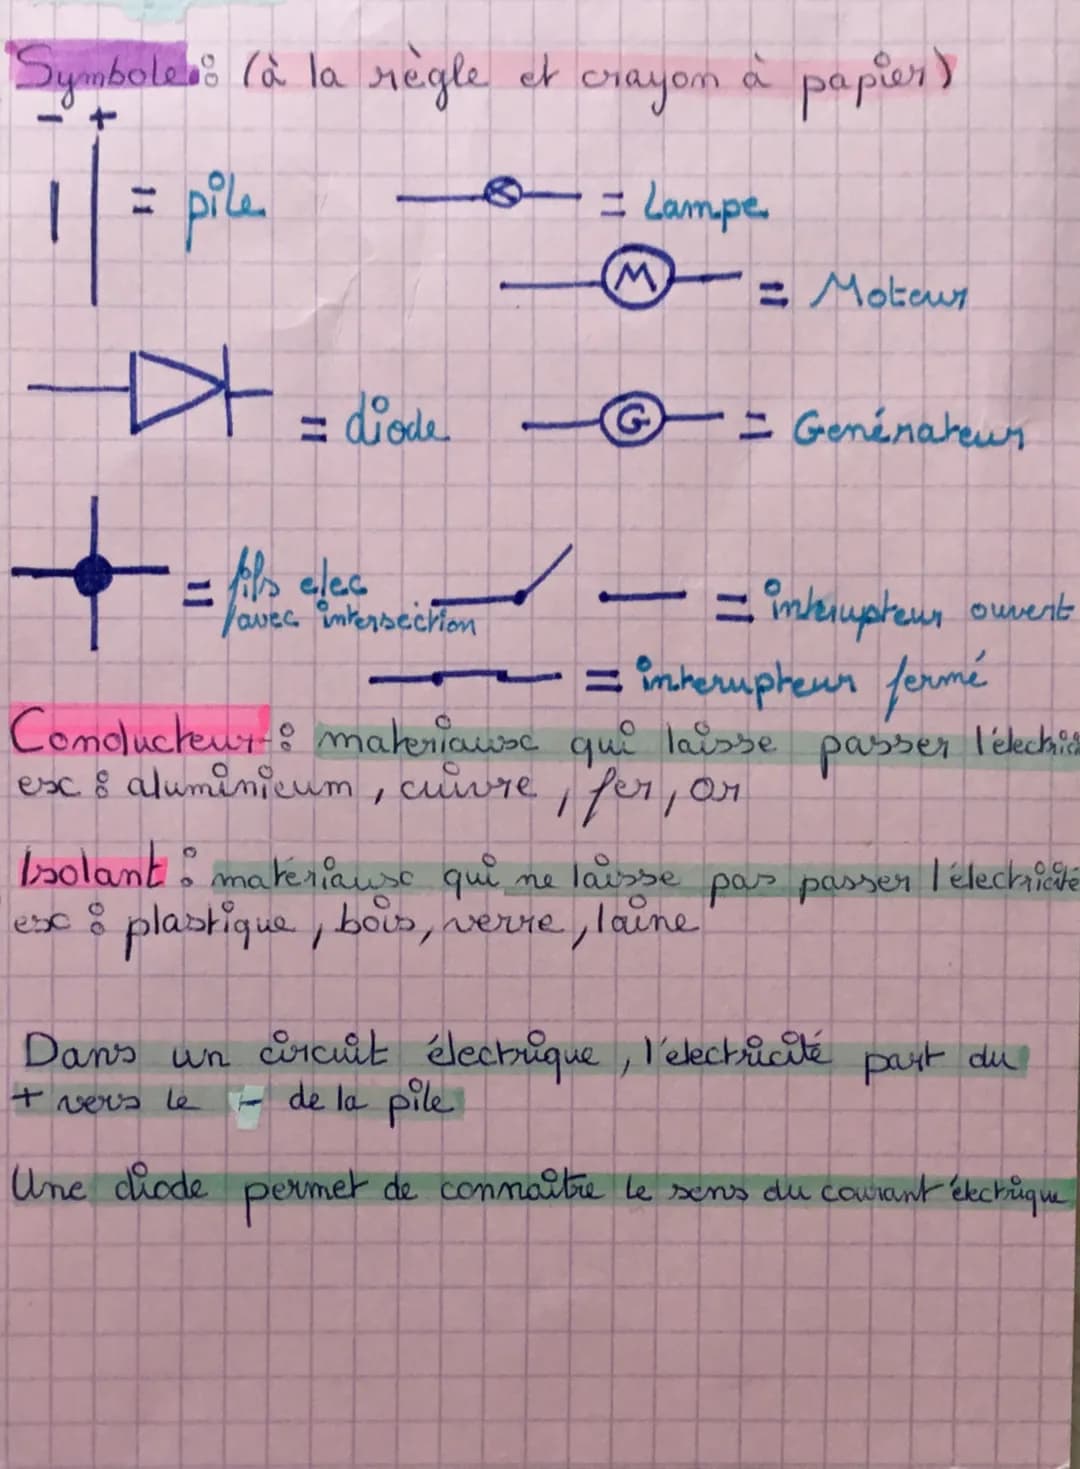 Symbole : (à la règle et crayon à papier)
- +
= pile
= Lampe
M = Moteur
= diode
G = Genérateur
= fils elec
/avec intersection
= interupteur ouvert
= interupteur fermé
Conducteur : materiaux qui laisse passer l'électric
ex : aluminium, cuivre, fer, or
Isolant : matériaux qui ne laisse pas passer l'électricité
ex : plastique, bois, verre, laine
Dans un circuit électrique, l'electricité part du
+ vers le - de la pile
Une diode permet de connaître le sens du courant électrique